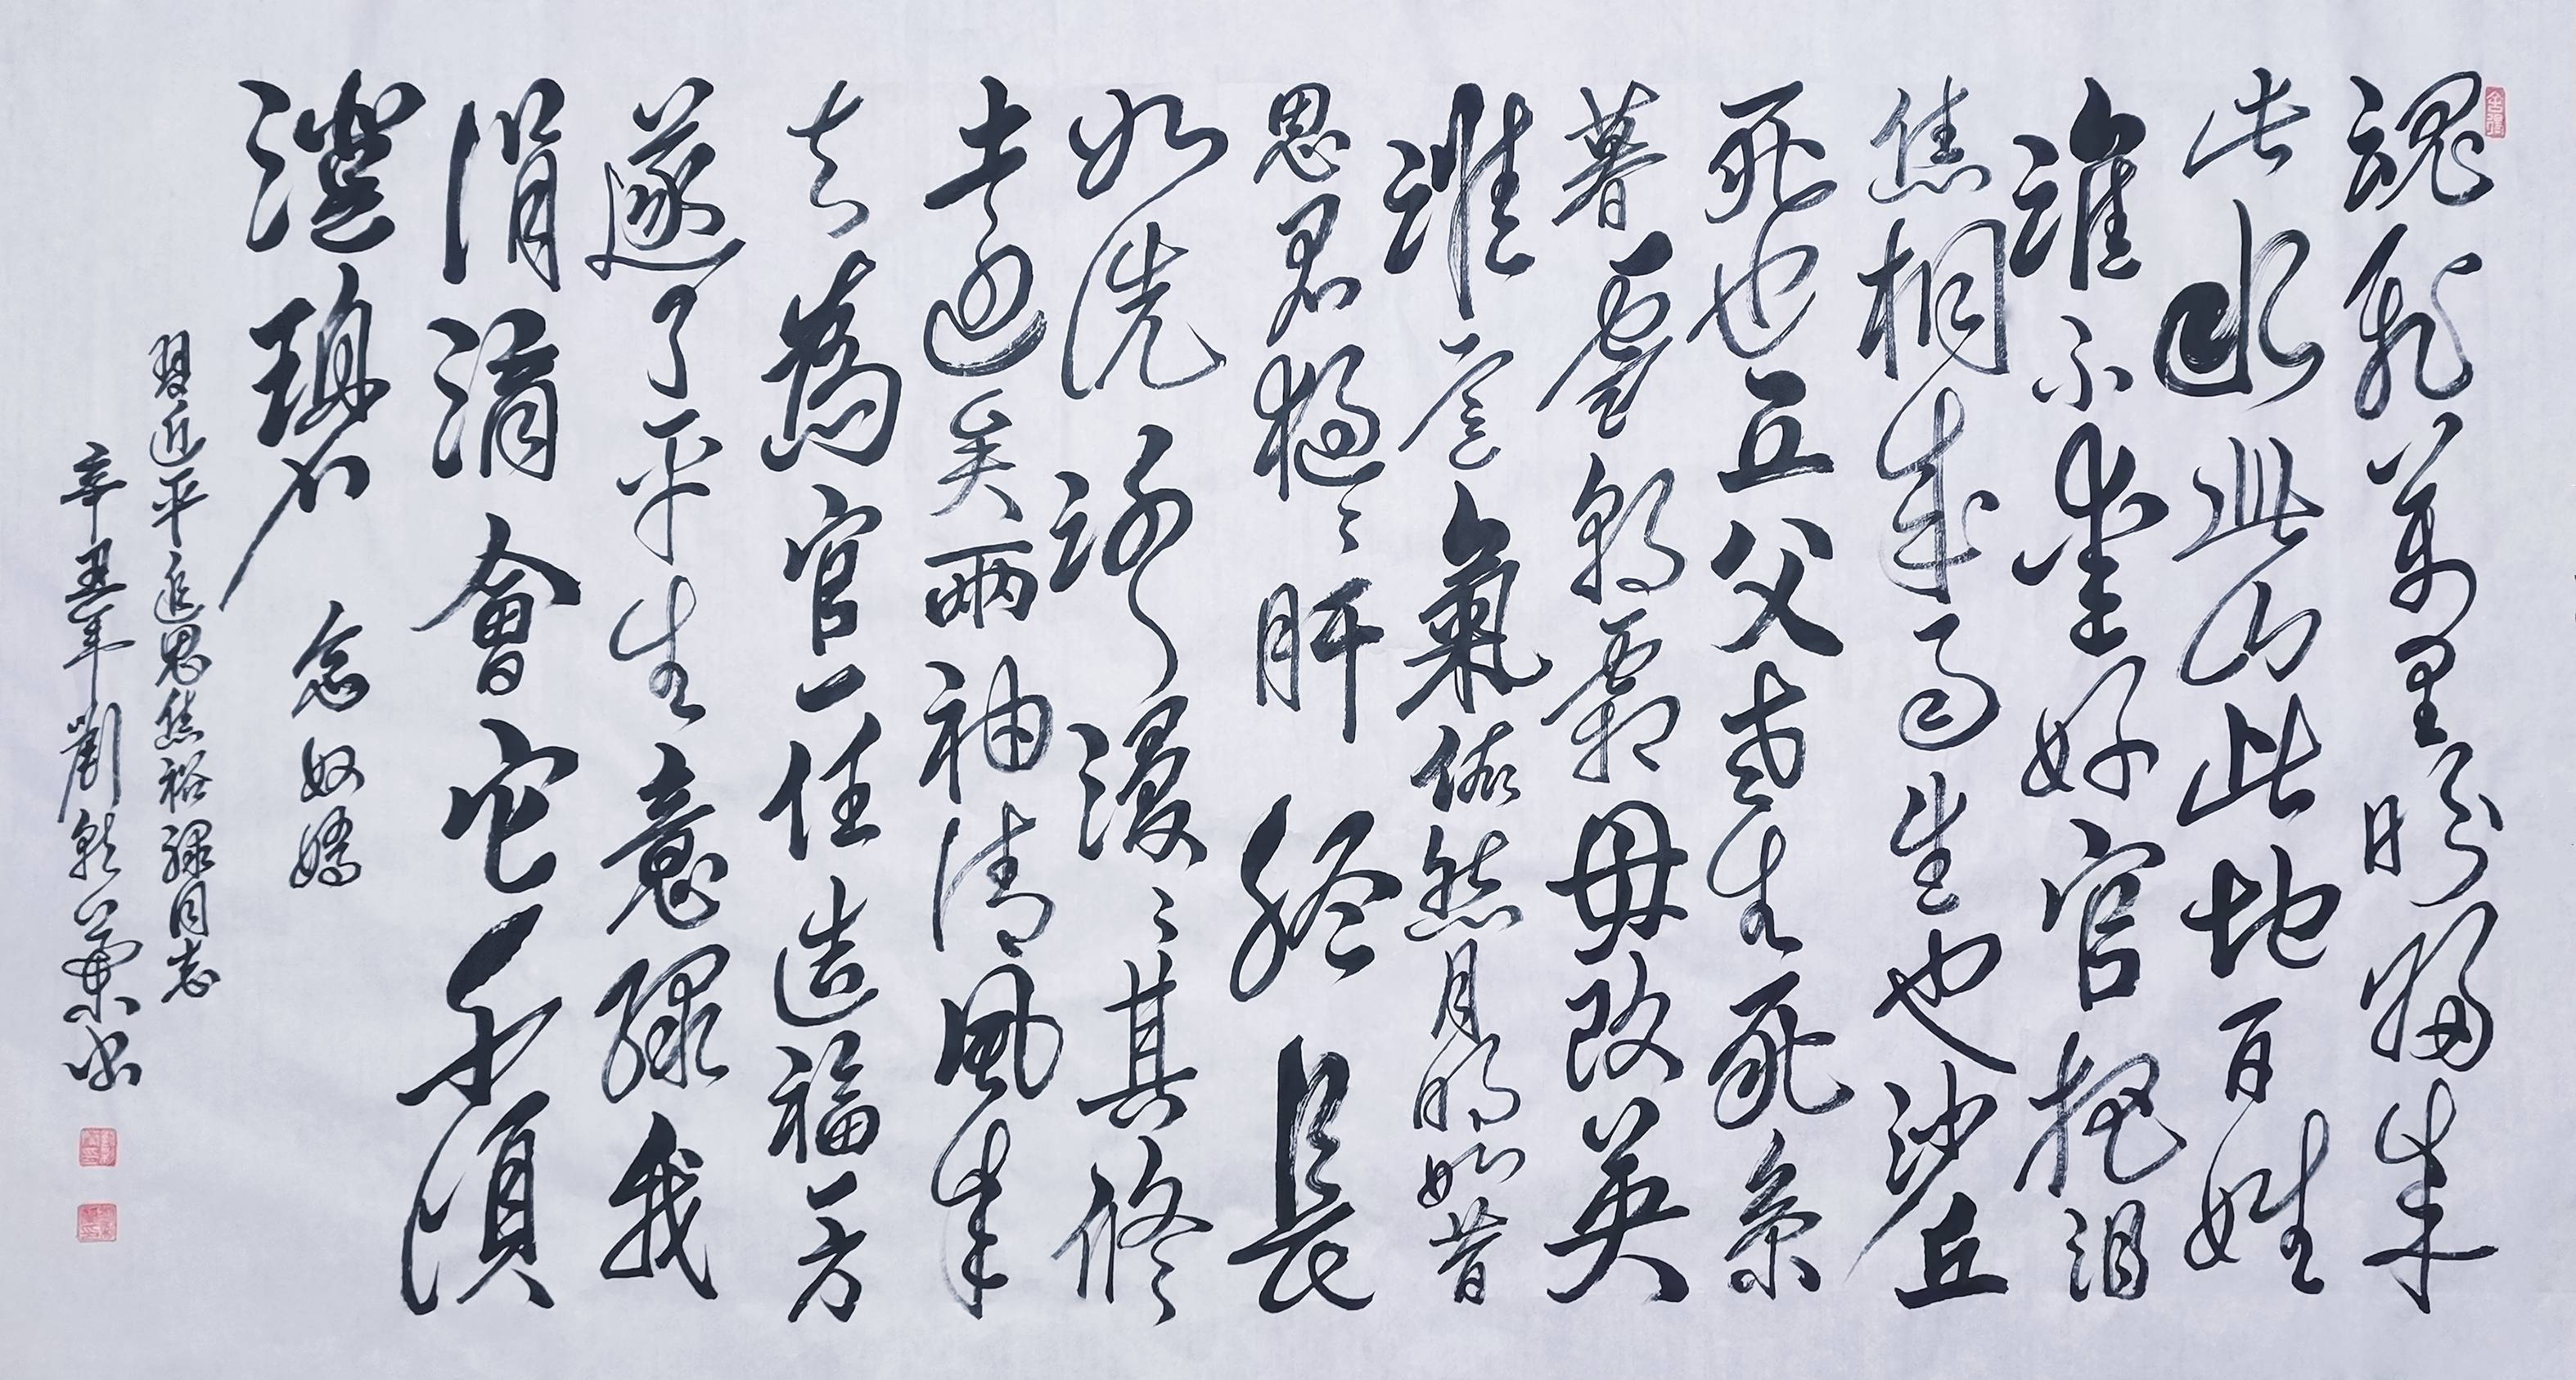 魂飛萬里盼歸来
此水此山此地百姓
誰不愛好官把泪
焦桐成雨生也沙丘
死也丘父老生死系
暮雪朝霜毋改英
雄意氣依然月明如昔
思君夜〻肝膽長
如洗路漫〻其修
遠矣兩袖清風来
去為官一任造福一方
遂了平生意緑我
涓滴會它千頃
澄碧 念奴嬌
習近平追思焦裕禄同志
辛丑年劉書